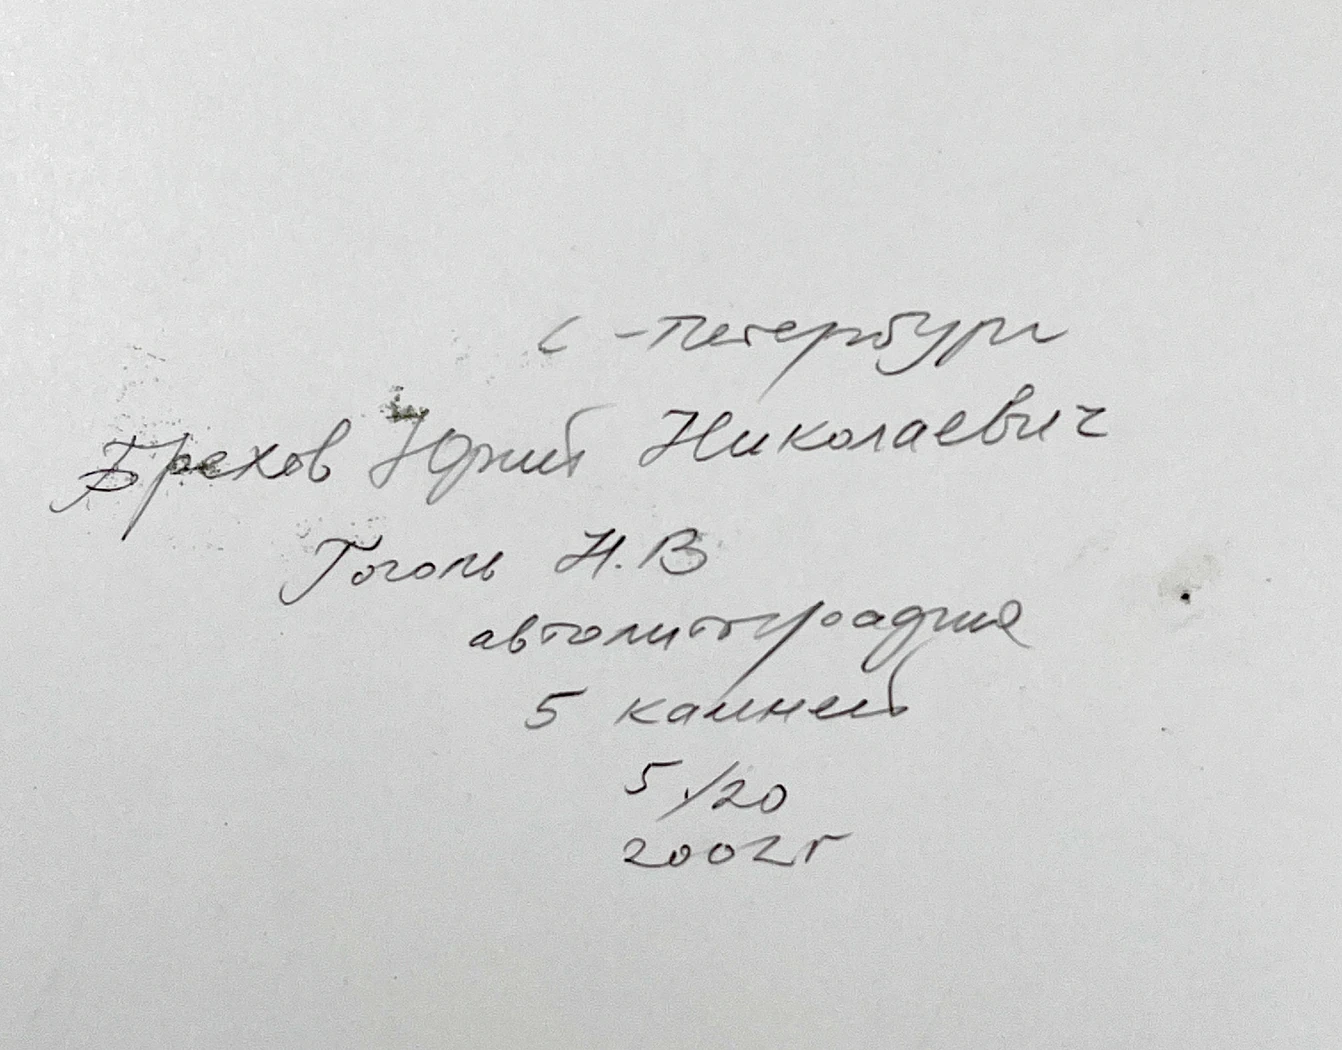 С-Петербург
Брехов Юрий Николаевич
Гоголь Н.В
автолитография
5 камней
5/20
2002г